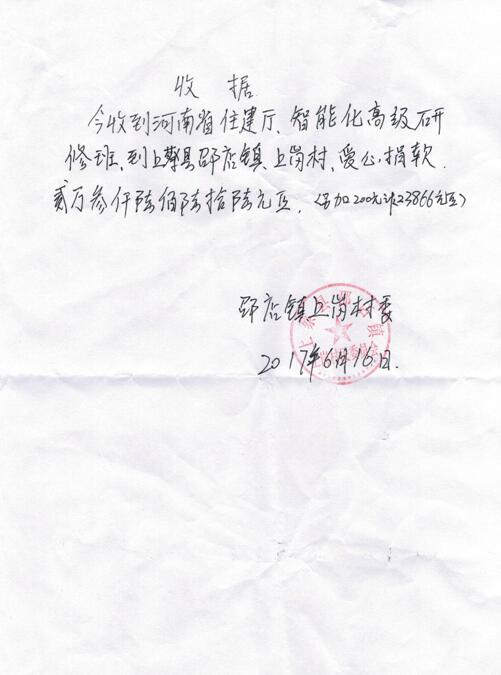 收 据
今收到河南省住建厅、智能化高级研
修班、到上蔡县邵店镇上岗村、爱心捐款.
贰万参仟陆佰陆拾陆元正.（另加200元计23866元正）
邵店镇上岗村委
2017年6月16日.